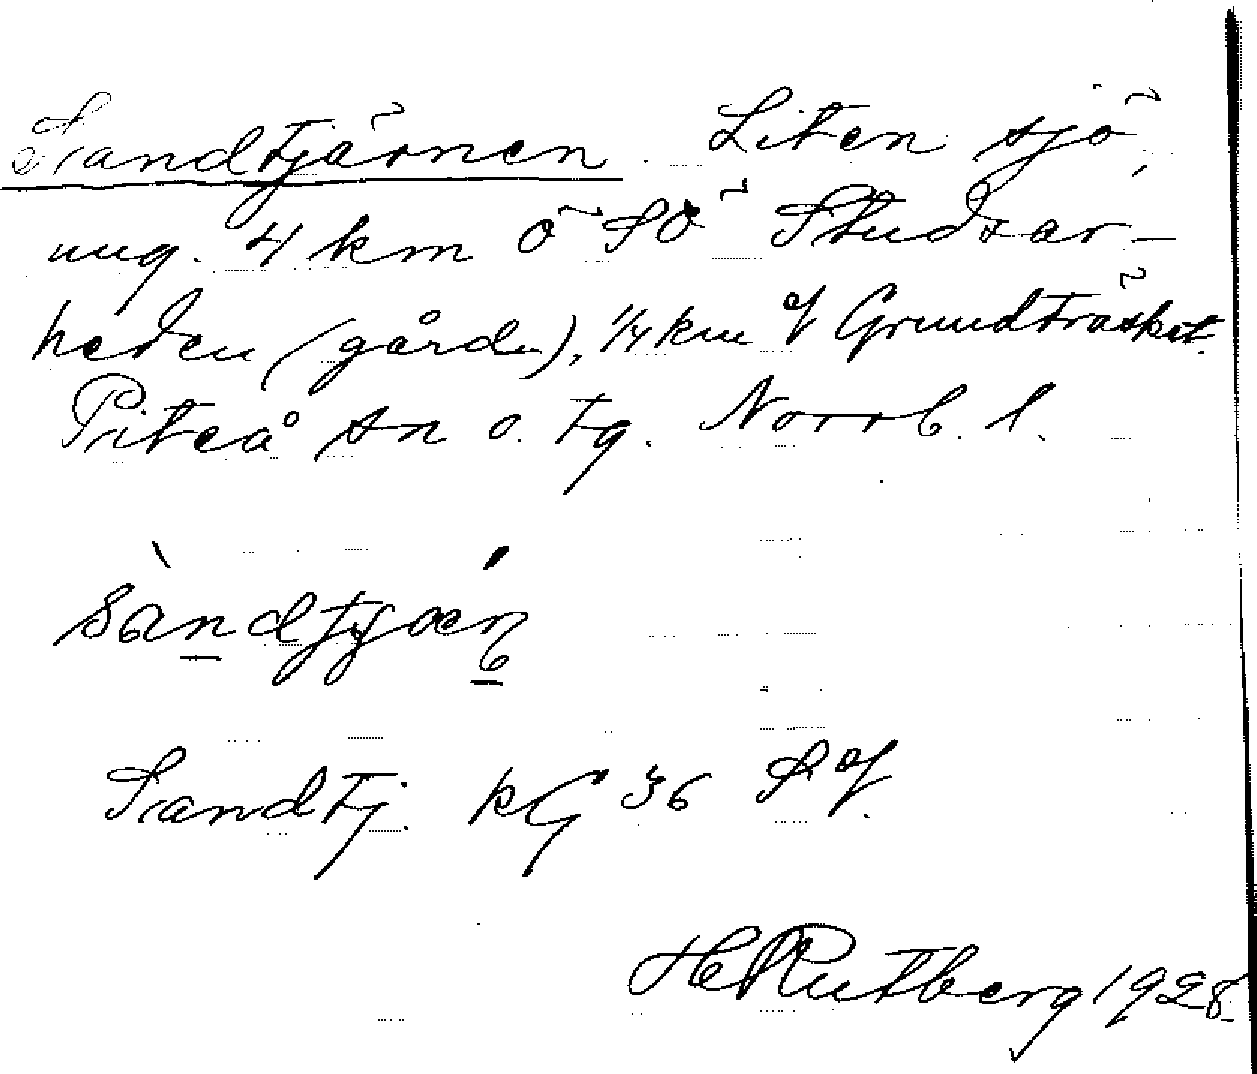 Sandtjärnen. Liten sjö,
ung. 4 km Ö SÖ Studsar-
heden (gård), 1/4 km Grundträsket.
Piteå sn o. tg. Norrb. l.
Sandtj. kG 36 S
H Rutberg 1928.